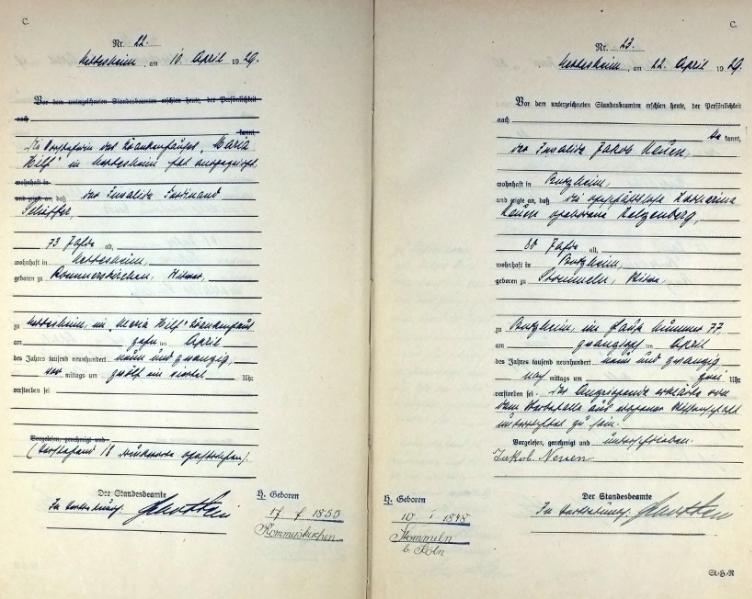 C.
Nr. 22.
Nettesheim, am 10. April 1929.
Vor dem unterzeichneten Standesbeamten erschien heute, der Persönlichkeit
nach
kannt,
Die Vorsteherin des Krankenhauses "Maria
Hilf" in Nettesheim hat angezeigt,
wohnhaft in
und zeigte an, daß der Invalide Ferdinand
73 Jahre alt,
wohnhaft in Nettesheim,
geboren zu Rommerskirchen, Witwer,
zu Nettesheim, im "Maria Hilf" Krankenhaus
am zehnten April
des Jahres tausend neunhundert neun und zwanzig,
vor mittags um zwölf ein viertel Uhr
verstorben sei
Vorgelesen, genehmigt und
(Vorstehend 18 Druckworte gestrichen)
Der Standesbeamte
In Vertretung:
H. Geboren
1855
Rommerskirchen
C.
Nr. 23.
Nettesheim, am 22. April 1929
Vor dem unterzeichneten Standesbeamten erschien heute, der Persönlichkeit
nach
be kannt,
der Invalide Jakob Neuen,
wohnhaft in Butzheim,
und zeigte an, daß die Katharina
Neuen geborene
80 Jahre alt,
wohnhaft in Butzheim,
geboren zu Stommeln, Witwe,
zu Butzheim, im Hause Nummer 77,
am zwanzigsten April
des Jahres tausend neunhundert neun und zwanzig
nach mittags um zwei Uhr
verstorben sei. Der Anzeigende erklärte von
dem Sterbefalle aus eigener Wissenschaft
unterrichtet zu sein.
Vorgelesen, genehmigt und unterschrieben.
Jakob. Neuen
Der Standesbeamte
In Vertretung:
H. Geboren
10 1848
Stommeln
b. Köln
St-H-R